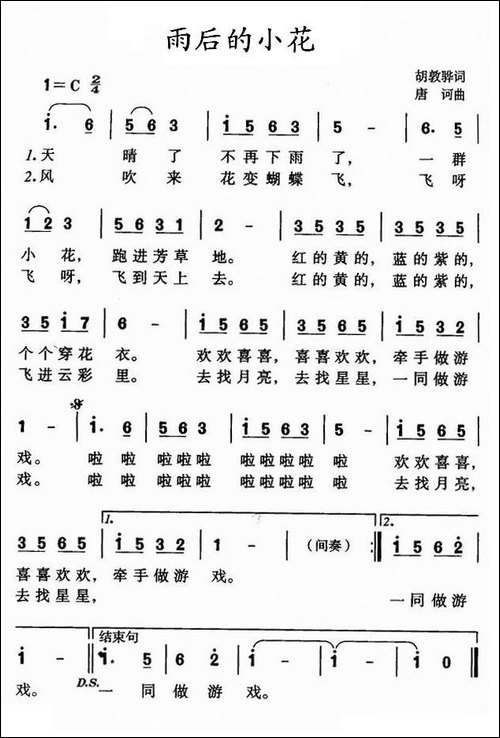 雨后的小花
1=C 2/4
胡敦骅词
唐 诃曲
i· 6 | 5 6 3 | i 5 6 3 | 5 - | 6· 5 |
1.天 晴 了 不再下雨 了, 一 群
2.风 吹 来 花变蝴蝶 飞, 飞 呀
1 2 3 | 5 6 3 1 | 2 - | 3 5 3 5 | 3 5 3 5 |
小 花, 跑进芳草 地。 红的黄的, 蓝的紫的,
飞 呀, 飞到天上 去。 红的黄的, 蓝的紫的,
3 5 i 7 | 6 - | i 5 6 5 | 3 5 6 5 | i 5 3 2 |
个个穿花 衣。 欢欢喜喜, 喜喜欢欢, 牵手做游
飞进云彩 里。 去找月亮, 去找星星, 一同做游
1 - | i· 6 | 5 6 3 | i 5 6 3 | 5 - | i 5 6 5 |
戏。 啦 啦 啦啦啦 啦啦啦啦 啦 欢欢喜喜,
戏。 啦 啦 啦啦啦 啦啦啦啦 啦 去找月亮,
1. 2.
3 5 6 5 | i 5 3 2 | 1 - | (间奏) :‖ i 5 6 2 |
喜喜欢欢, 牵手做游 戏。
去找星星, 一同做游
结束句
i - ‖ i· 5 | 6 2 | i - | i - | i 0 ‖
戏。 D.S. 一 同 做游 戏。